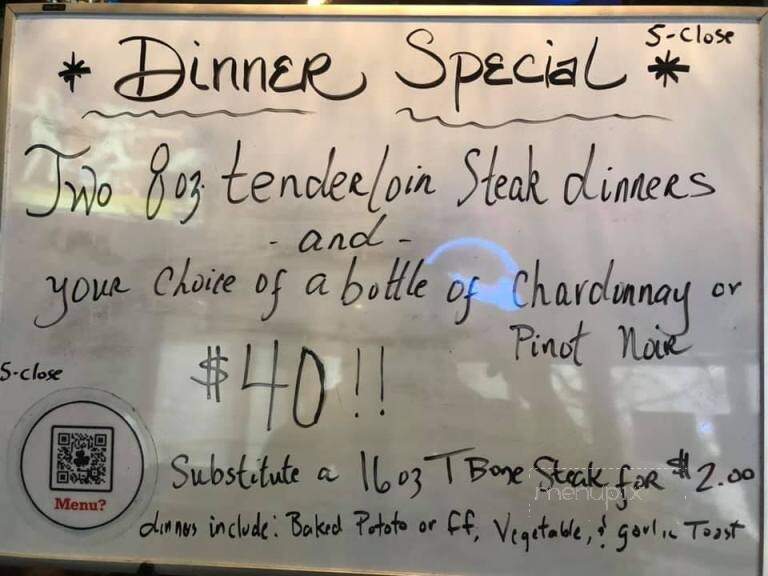 5-Close
* Dinner Special *
Two 8oz. tenderloin Steak dinners
- and -
your choice of a bottle of Chardonnay or
Pinot Noir
$40!!
5-close
Menu?
Substitute a 16oz T Bone Steak for $2.00
menupix
dinners include: Baked Potato or ff, Vegetable, & garlic Toast